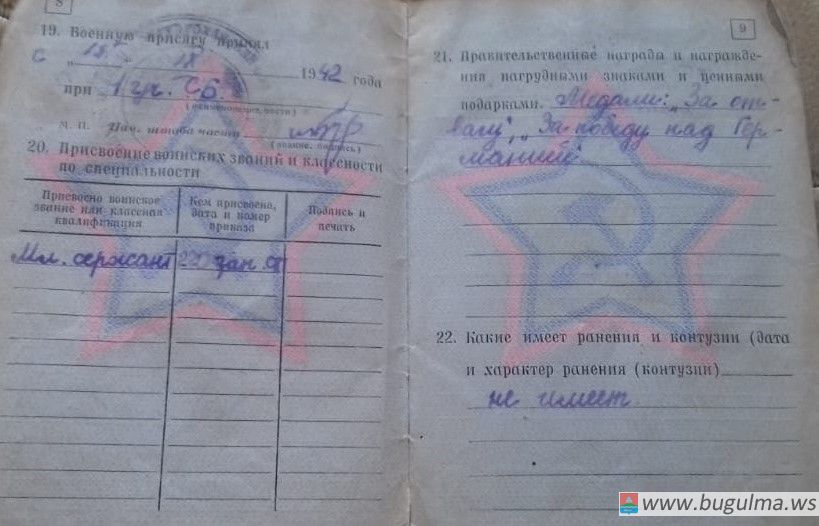 8
19. Военную присягу принял
с „15“ IX 1942 года
при 1 уч. СБ.
(наименование части)
М. П. Нач. штаба части
(звание, подпись)
20. Присвоение воинских званий и классности
по специальности
Присвоено воинское звание или классная квалификация
Кем присвоено, дата и номер приказа
Подпись и печать
Мл. сержант
220 зап. СП
9
21. Правительственные награды и награжде-
ния нагрудными знаками и ценными
подарками. Медали: „За от-
вагу“, „За победу над Гер-
манией“
22. Какие имеет ранения и контузии (дата
и характер ранения (контузии)
не имеет
www.bugulma.ws